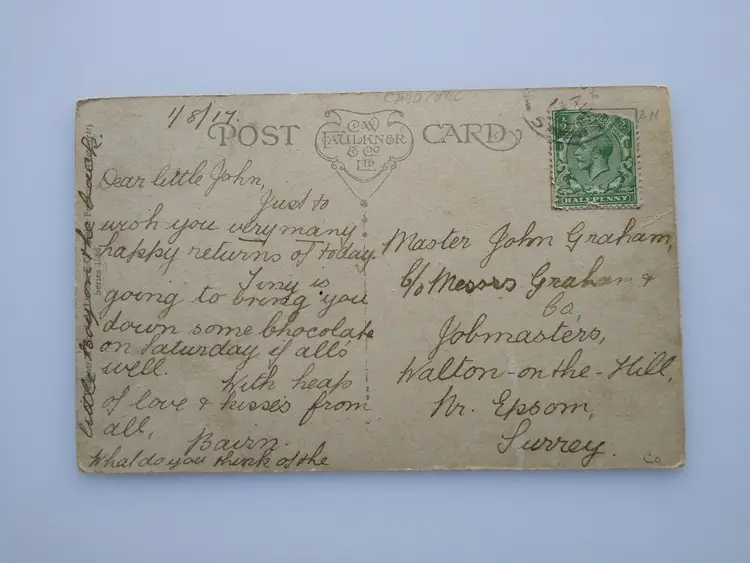 1/8/17.
POST CARD
C.W.
FAULKNER
& Co
LTD.
HALFPENNY
Dear little John,
Just to
wish you very many
happy returns of today.
Tiny is
going to bring you
down some Chocolate
on Saturday if all's
well.
With heaps
of love & kisses from
all,
Bairn.
What do you think of the
little boy on the back.
Series
Master John Graham,
c/o Messrs Graham &
Co,
Jobmasters,
Walton-on-the-Hill,
Nr. Epsom,
Surrey.
Co